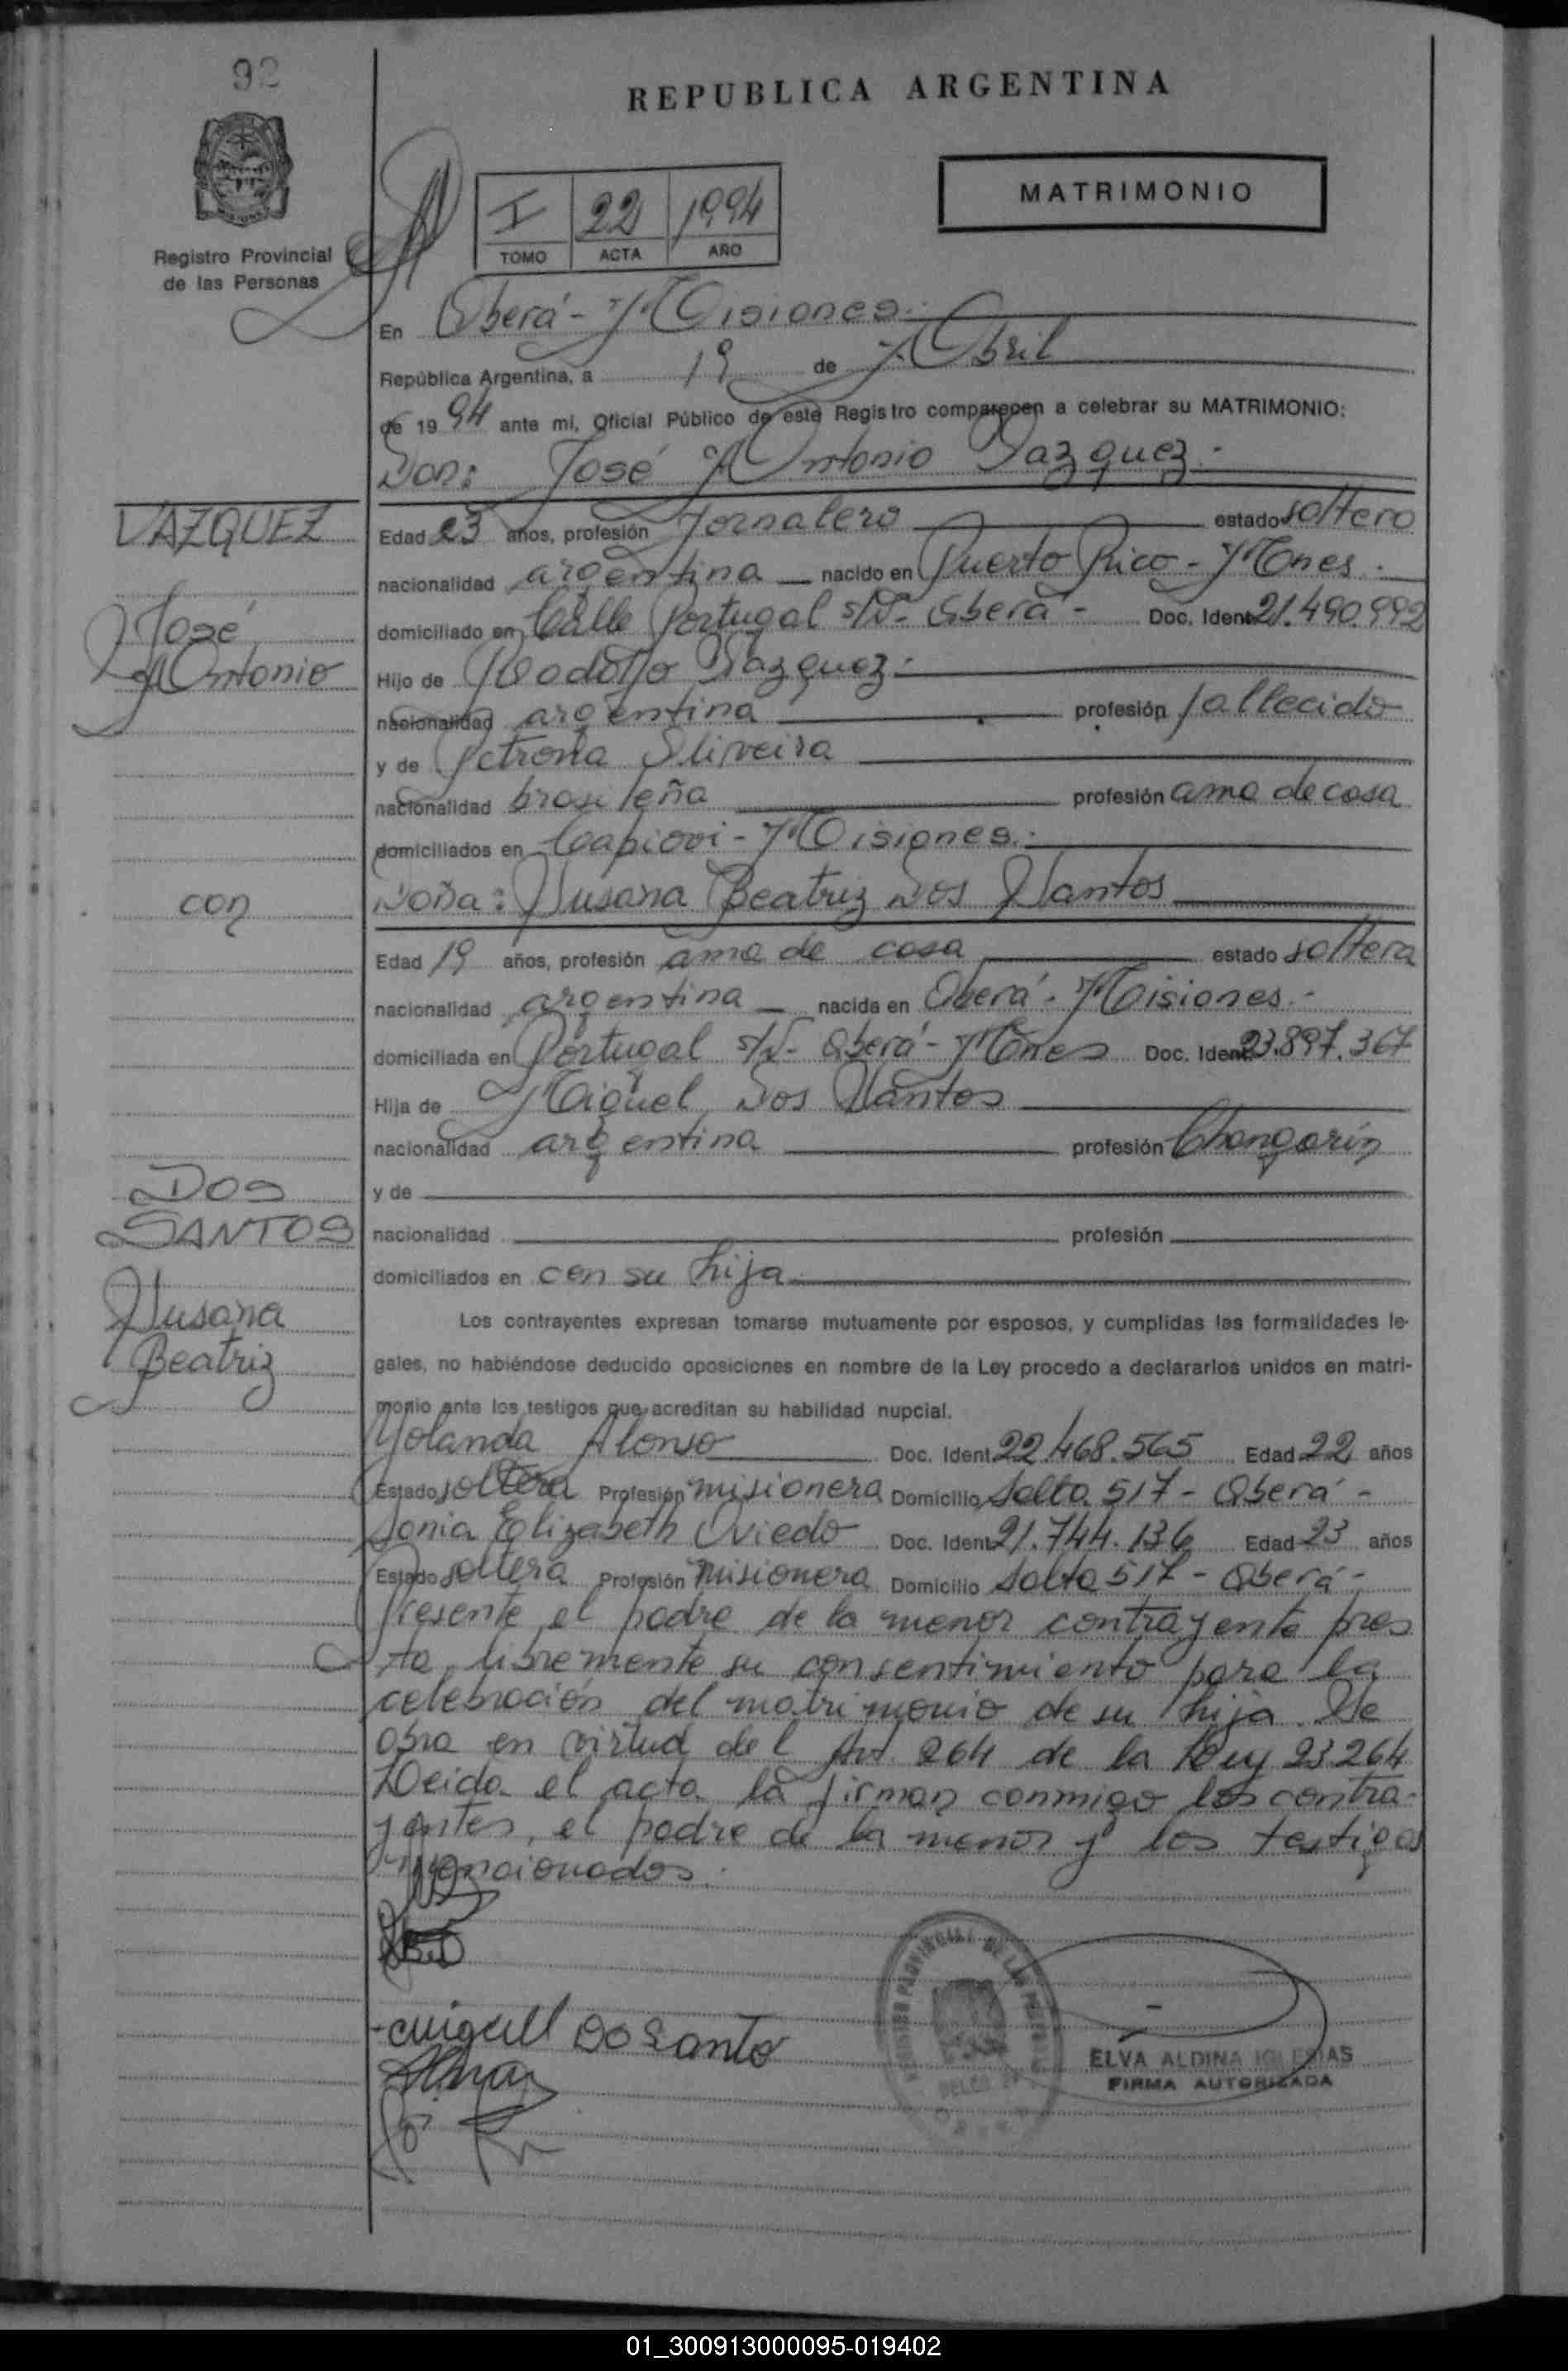 92
REPUBLICA ARGENTINA
MATRIMONIO
I 22 1994
TOMO ACTA AÑO
Registro Provincial
de las Personas
En Oberá - Misiones.-
República Argentina, a 19 de Abril
de 19 94 ante mi, Oficial Público de este Registro comparecen a celebrar su MATRIMONIO:
Don: José Antonio Vazquez.-
VAZQUEZ
José
Antonio
Edad 23 años, profesión Jornalero estado soltero
nacionalidad argentina nacido en Puerto Rico - Mnes.
domiciliado en Calle Portugal s/N - Oberá - Doc. Ident. 21.490.992
Hijo de Rodolfo Vazquez.-
nacionalidad argentina profesión fallecido
y de Petrona Oliveira
nacionalidad brasileña profesión ama de casa
domiciliados en Capiovi - Misiones.-
con
Doña: Susana Beatriz Dos Santos
Edad 19 años, profesión ama de casa estado soltera
nacionalidad argentina nacida en Oberá - Misiones.-
domiciliada en Portugal s/N - Oberá - Mnes Doc. Ident. 23.897.367
Hija de Miguel Dos Santos
nacionalidad argentina profesión Changarín
DOS
SANTOS
Susana
Beatriz
y de
nacionalidad profesión
domiciliados en con su hija
Los contrayentes expresan tomarse mutuamente por esposos, y cumplidas las formalidades le-
gales, no habiéndose deducido oposiciones en nombre de la Ley procedo a declararlos unidos en matri-
monio ante los testigos que acreditan su habilidad nupcial.
Yolanda Alonso Doc. Ident. 22.468.565 Edad 22 años
Estado soltera Profesión misionera Domicilio Salta 517 - Oberá -
Sonia Elizabeth Oviedo Doc. Ident. 21.744.136 Edad 23 años
Estado soltera Profesión misionera Domicilio Salta 517 - Oberá -
Presente el padre de la menor contrayente pres
ta libremente su consentimiento para la
celebración del matrimonio de su hija. Se
obra en virtud del Art. 264 de la Ley 23.264
Leida el acta la firman conmigo los contra-
yentes, el padre de la menor y los testigos
mencionados.
miguell Do Santo
REGISTRO PROVINCIAL DE LAS PERSONAS
ELVA ALDINA IGLESIAS
FIRMA AUTORIZADA
01_300913000095-019402